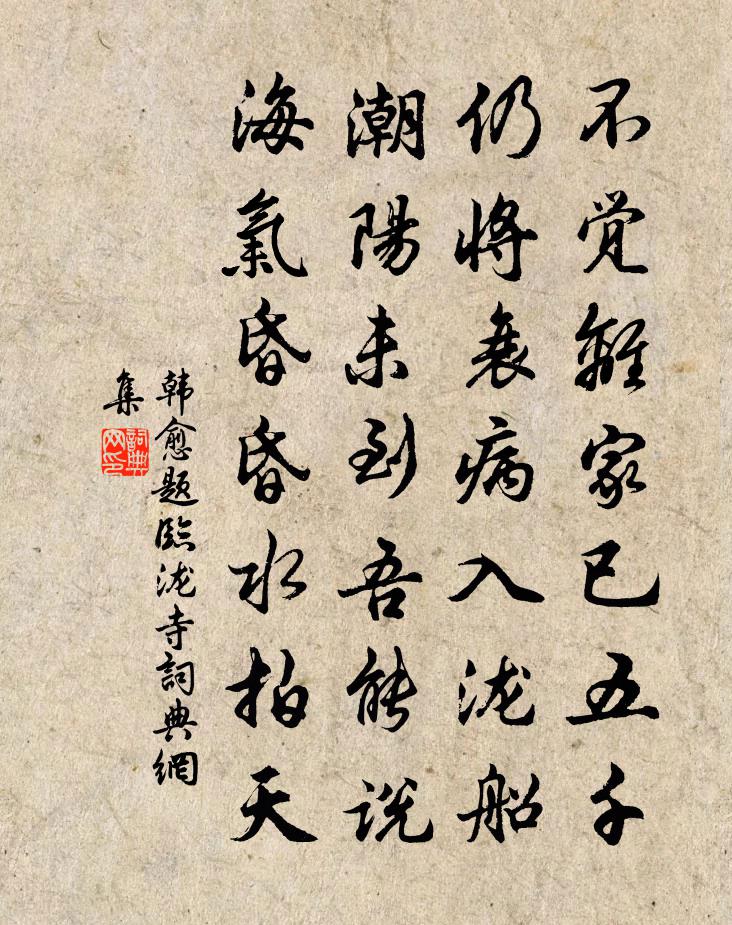 不觉離家已五千
仍將衰病入泷船
潮陽未到吾能說
海氣昏昏水拍天
韩愈题臨泷寺詞典網
集
詞典
网印